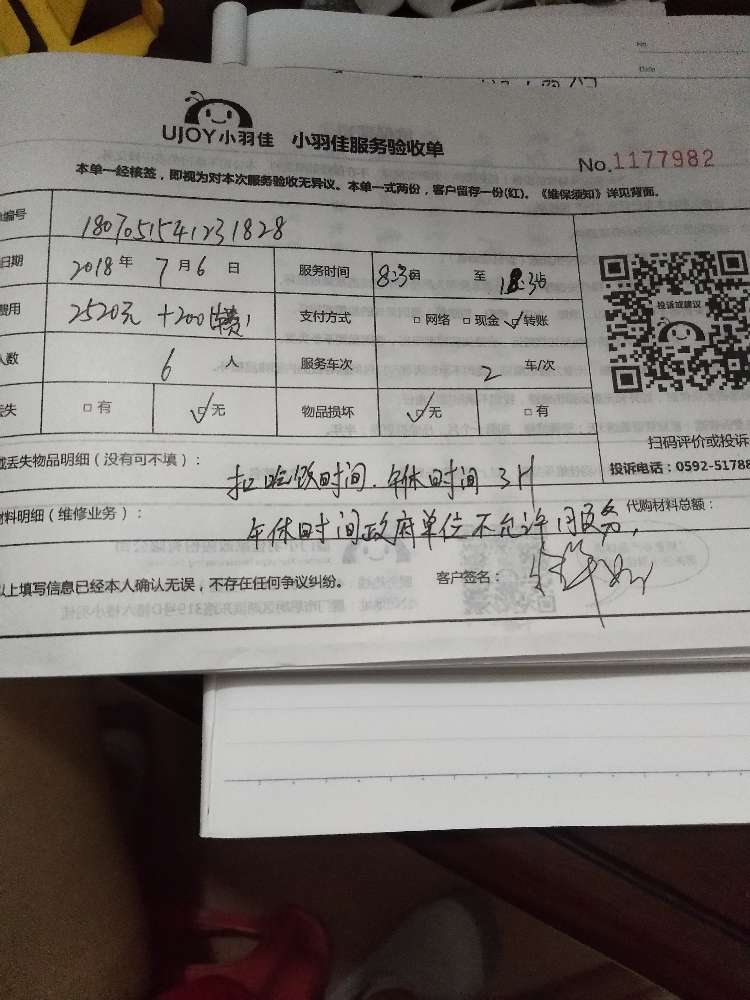 No
Date
UJOY小羽佳 小羽佳服务验收单
No.1177982
本单一经核签，即视为对本次服务验收无异议。本单一式两份，客户留存一份(红)。《维保须知》详见背面。
编号 180705154123 1828
日期 2018年 7月6日 服务时间 8:30 至
费用 2520元 +200( 支付方式 □网络 □现金 ☑转账
人数 6人 服务车次 2 车/次
丢失 □有 ☑无 物品损坏 ☑无 □有
投诉或建议
扫码评价或投诉
投诉电话：0592-51788
丢失物品明细（没有可不填）： 扣吃饭时间.午休时间 3H
材料明细（维修业务）： 代购材料总额：
午休时间政府单位不允许 服务，
以上填写信息已经本人确认无误，不存在任何争议纠纷。 客户签名：